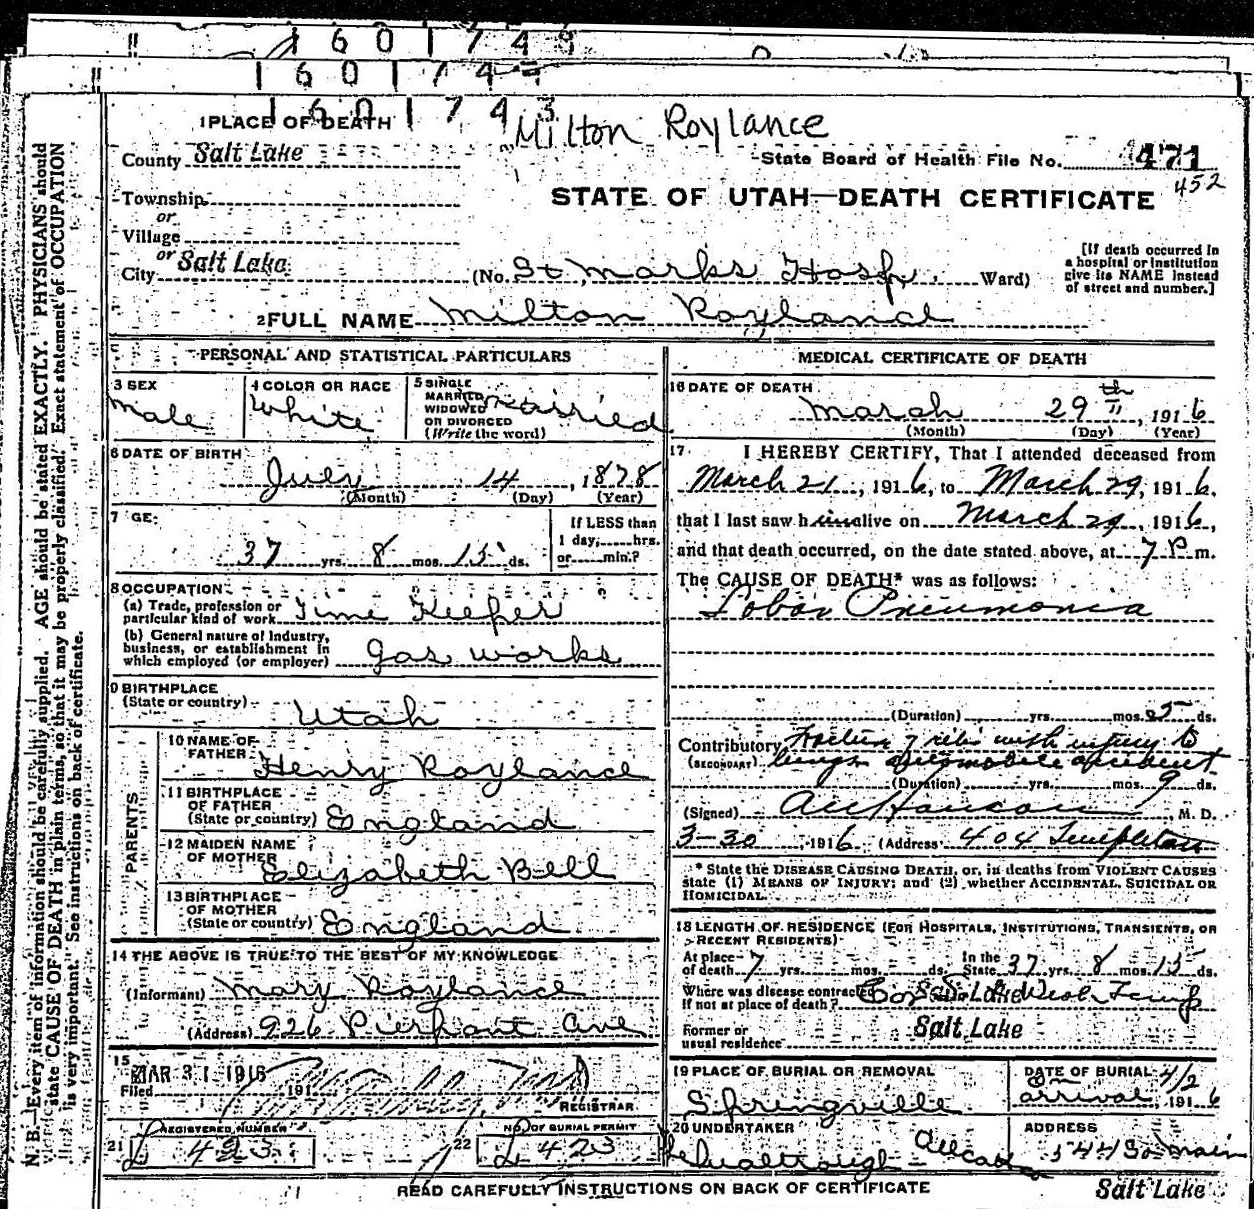 1 6 0 1 7 4
1 6 0 1 7 4
1 6 0 1 7 4 3
Milton Roylance
1 PLACE OF DEATH
County Salt Lake
State Board of Health File No. 471
452
Township
or
Village
or
City Salt Lake
STATE OF UTAH—DEATH CERTIFICATE
(No. St Marks Hosp. Ward)
[If death occurred in
a hospital or institution
give its NAME instead
of street and number.]
2 FULL NAME Milton Roylance
PERSONAL AND STATISTICAL PARTICULARS
3 SEX
Male
4 COLOR OR RACE
White
5 SINGLE
MARRIED
WIDOWED
OR DIVORCED
(Write the word)
Married
6 DATE OF BIRTH
July 14, 1878
(Month) (Day) (Year)
7 GE:
37 yrs. 8 mos. 15 ds.
If LESS than
1 day, hrs.
or min.?
8 OCCUPATION
(a) Trade, profession or
particular kind of work Time Keeper
(b) General nature of Industry,
business, or establishment in
which employed (or employer) gas works
9 BIRTHPLACE
(State or country)
Utah
PARENTS
10 NAME OF
FATHER
Henry Roylance
11 BIRTHPLACE
OF FATHER
(State or country) England
12 MAIDEN NAME
OF MOTHER
Elizabeth Bell
13 BIRTHPLACE
OF MOTHER
(State or country) England
14 THE ABOVE IS TRUE TO THE BEST OF MY KNOWLEDGE
(Informant) Mary Roylance
(Address) 926 Pierpont Ave
15
MAR 31 1916
Filed 191
REGISTRAR
REGISTERED NUMBER
21 L 423
NO. OF BURIAL PERMIT
22 L 423
MEDICAL CERTIFICATE OF DEATH
16 DATE OF DEATH
March 29th, 1916
(Month) (Day) (Year)
17 I HEREBY CERTIFY, That I attended deceased from
March 21, 1916, to March 29, 1916.
that I last saw him alive on March 29, 1916,
and that death occurred, on the date stated above, at 7 P m.
The CAUSE OF DEATH* was as follows:
Lobar Pneumonia
(Duration) yrs. mos. 5 ds.
Contributory Fracture of ribs with injury to
(SECONDARY) lungs automobile accident
(Duration) yrs. mos. 9 ds.
(Signed) M. D.
3-30, 1916 (Address) 404 Templeton
* State the DISEASE CAUSING DEATH, or, in deaths from VIOLENT CAUSES
state (1) MEANS OF INJURY; and (2) whether ACCIDENTAL, SUICIDAL OR
HOMICIDAL.
18 LENGTH OF RESIDENCE (FOR HOSPITALS, INSTITUTIONS, TRANSIENTS, OR
RECENT RESIDENTS)
At place
of death 7 yrs. mos. ds.
In the
State 37 yrs. 8 mos. 15 ds.
Where was disease contracted
If not at place of death? Salt Lake
Former or
usual residence Salt Lake
19 PLACE OF BURIAL OR REMOVAL
Springville
DATE OF BURIAL 4/2
On
arrival, 1916
20 UNDERTAKER
ADDRESS
544 So Main
Salt Lake
READ CAREFULLY INSTRUCTIONS ON BACK OF CERTIFICATE
N. B.—Every item of information should be carefully supplied. AGE should be stated EXACTLY. PHYSICIANS should
state CAUSE OF DEATH in plain terms, so that it may be properly classified. Exact statement of OCCUPATION
is very important. See instructions on back of certificate.